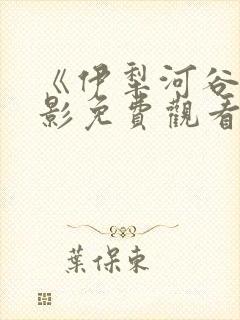 《伊犁河谷
影免費觀看
葉保東